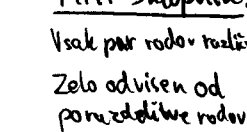 Vsak par rodov različ
Zelo odvisen od
porazdelitve rodov